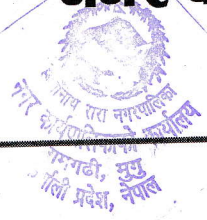 छायाँनाथ रारा नगरपालिका
नगर कार्यपालिकाको कार्यालय
गमगढी, मुगु
कर्णाली प्रदेश, नेपाल